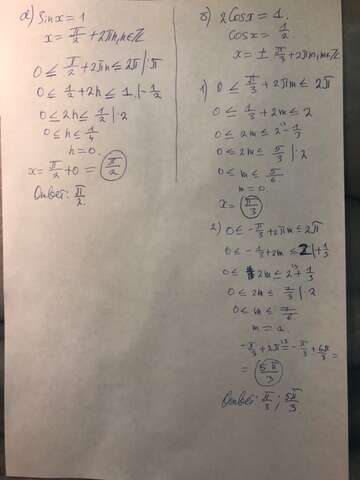 а) Sinx = 1
x = π/2 + 2πn, n∈Z
0 ≤ π/2 + 2πn ≤ 2π |: π
0 ≤ 1/2 + 2n ≤ 1. |-1/2
0 ≤ 2n ≤ 1/2 |: 2
0 ≤ n ≤ 1/4
n = 0.
x = π/2 + 0 = π/2
Ответ: π/2.
б) 2Cosx = 1.
Cosx = 1/2.
x = ± π/3 + 2πm, m∈Z
1) 0 ≤ π/3 + 2πm ≤ 2π
0 ≤ 1/3 + 2m ≤ 2
0 ≤ 2m ≤ 2 - 1/3
0 ≤ 2m ≤ 5/3 |: 2
0 ≤ m ≤ 5/6
m = 0.
x = π/3
2) 0 ≤ -π/3 + 2πm ≤ 2π
0 ≤ -1/3 + 2m ≤ 2 |+1/3
0 ≤ 2m ≤ 2 + 1/3
0 ≤ 2m ≤ 7/3 | 2
0 ≤ m ≤ 7/6.
m = 1.
-π/3 + 2π = -π/3 + 6π/3 =
= 5π/3
Ответ: π/3; 5π/3